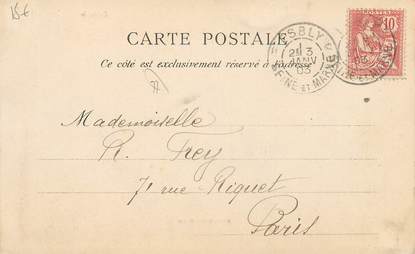 15€
CARTE POSTALE
Ce côté est exclusivement réservé à l'adresse
ESBLY
3
JANV
03
SEINE ET MARNE
10
SEINE-ET-MARNE
Mademoiselle
R. Frey
71 rue Riquet
Paris